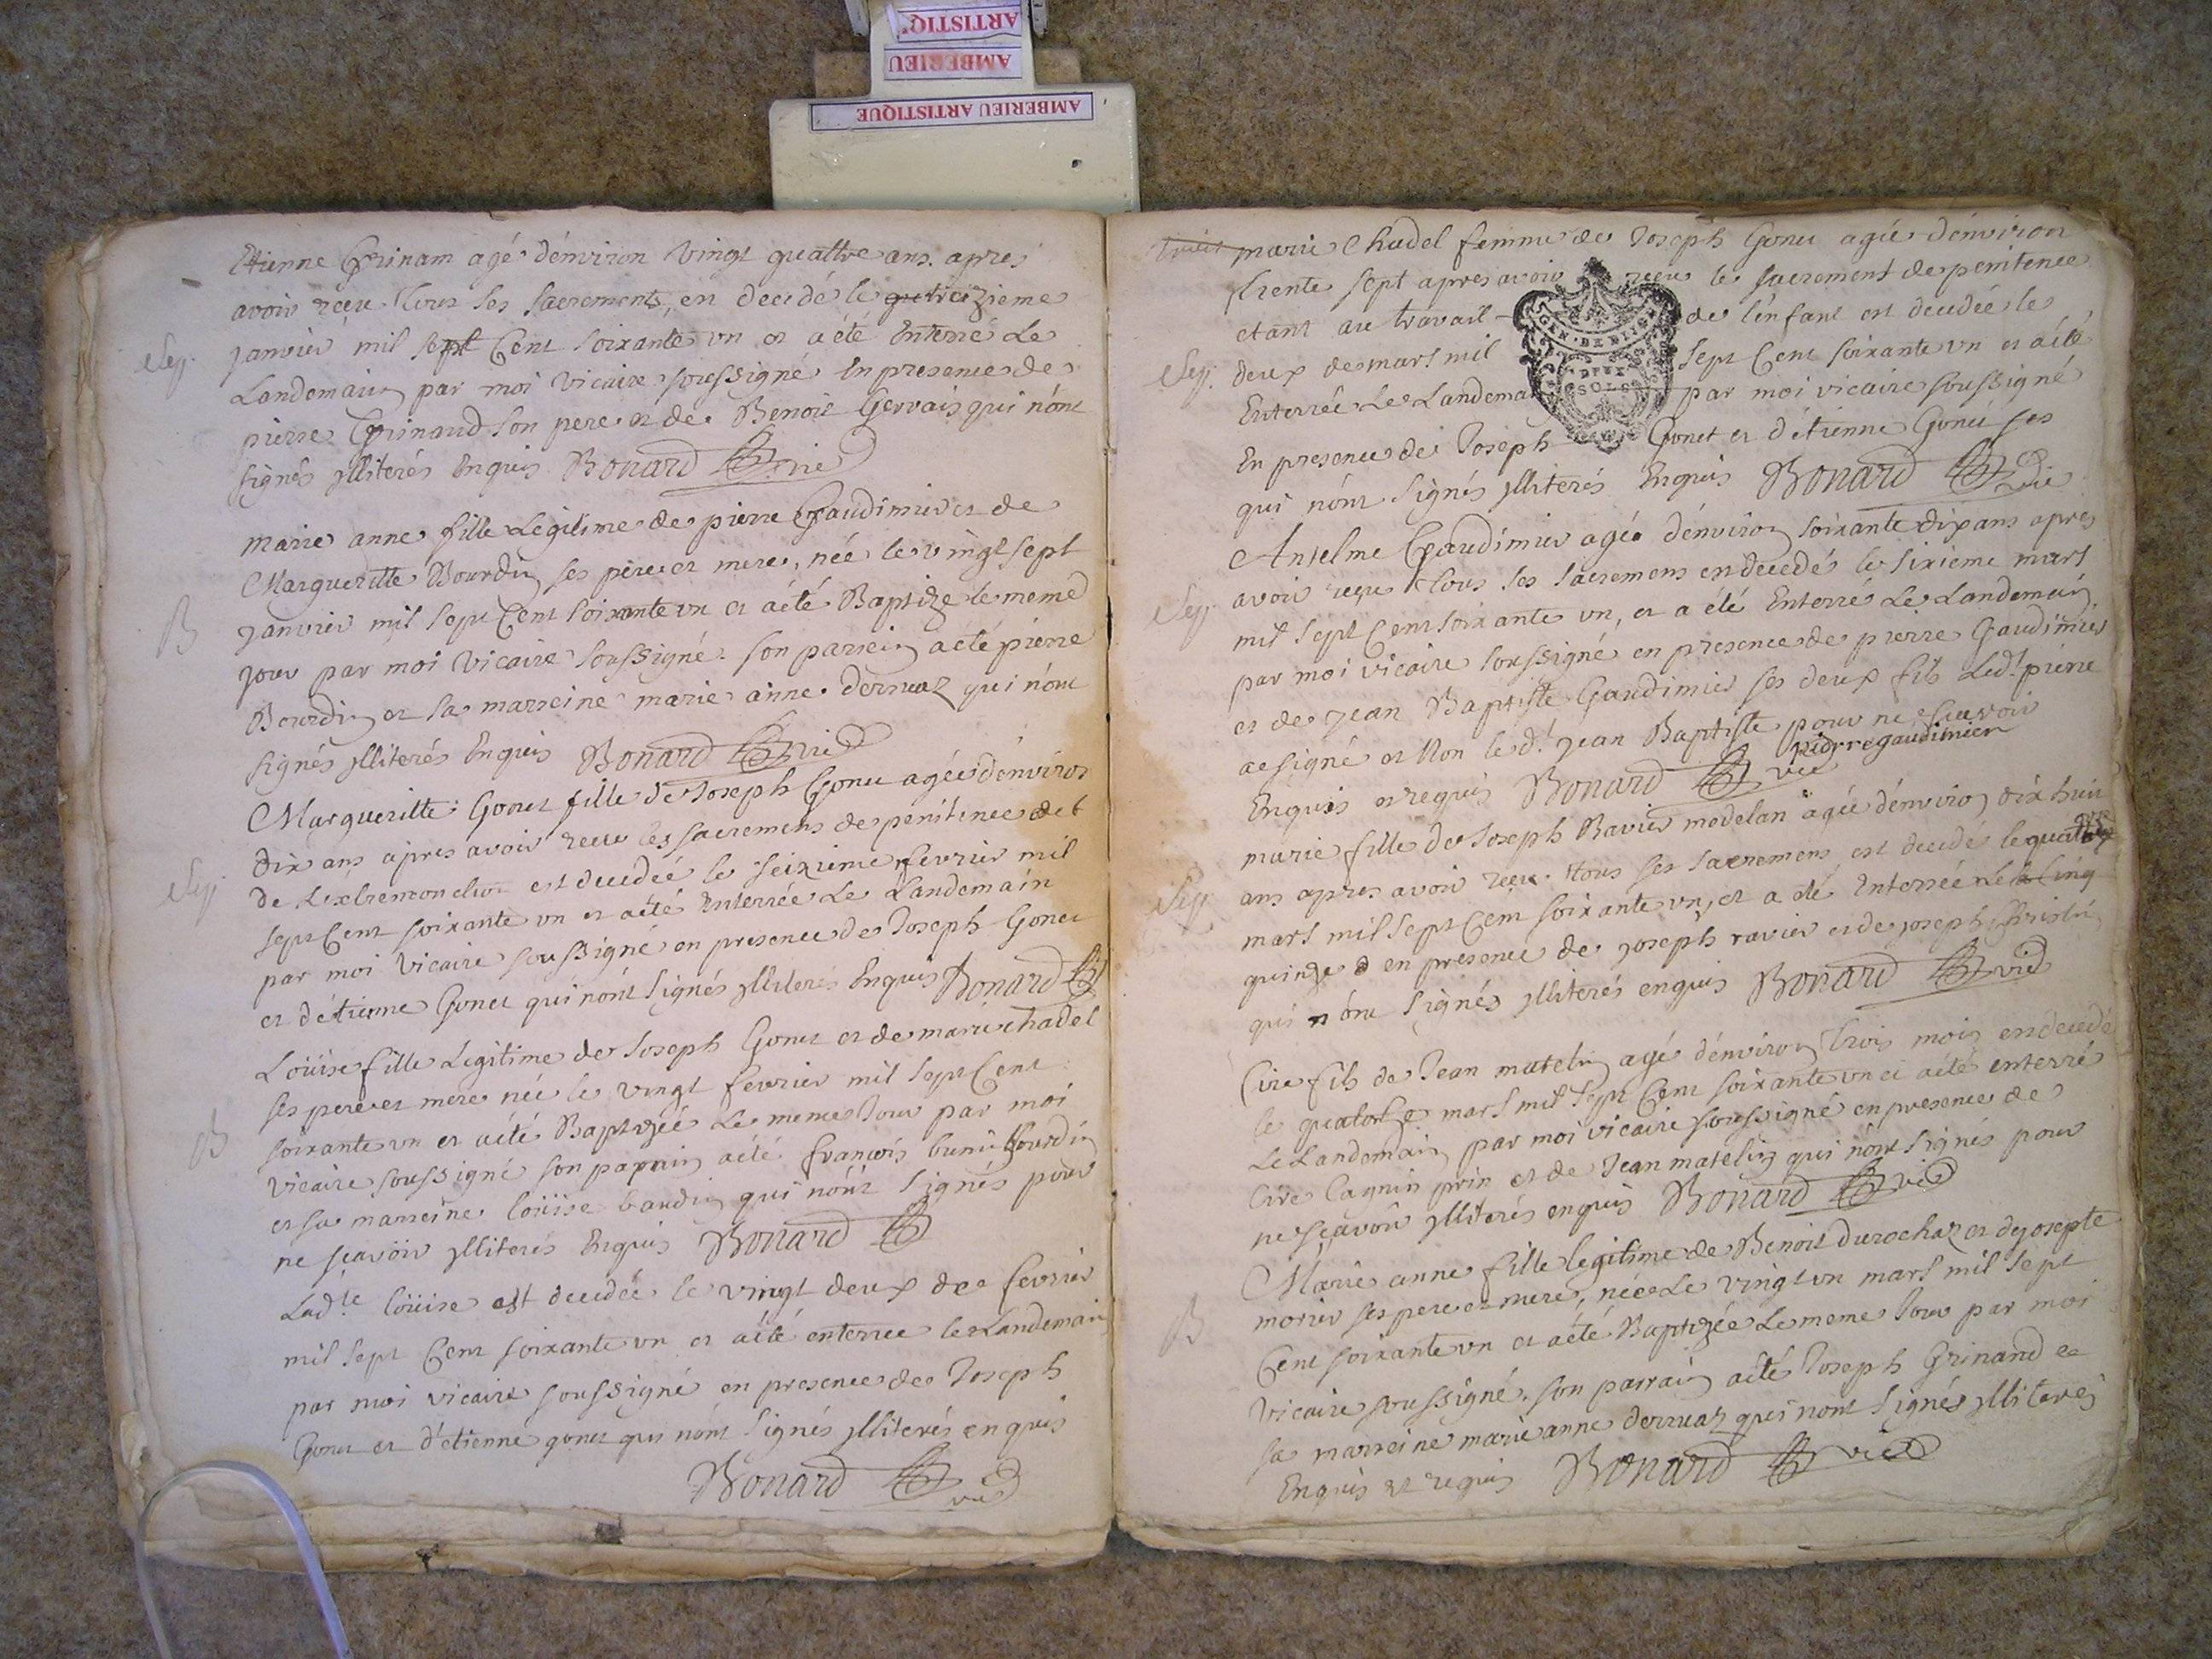 ARTISTIQ'
AMBERIEU
AMBERIEU ARTISTIQUE
Etienne Grinam agé d'environ vingt quattre ans apres
avoir reçu tous ses sacrements, en decedé le treizieme
Sep. janvier mil sept Cent soixante un et a été Enterré Le
Landemain par moi vicaire soussigné En presence de
pierre Grinand son pere et de Benoit Gervais qui n'ont
signésylliterés Enquis Bonard vic
marie anne fille Legitime de pierre Gaudimier et de
Margueritte Bourdin ses pere et mere, née le vingt sept
B janvier mil sept Cent soixante un et a été Baptizé le meme
jour par moi vicaire soussigné. son parrein a été pierre
Bourdin et sa marreine marie anne dervaz qui n'ont
signés ylliterés Enquis Bonard vic
Margueritte Gonet fille de Joseph Gonet agée d'environ
dix ans apres avoir reçu les sacremens de penitence et
Sep. de L'extremonction est decedée le seizieme fevrier mil
sept Cent soixante un et a été Enterrée Le Landemain
par moi vicaire soussigné en presence de Joseph Gonet
et d'étienne Gonet qui n'ont signés ylliterés Enquis Bonard
Loüise fille Legitime de Joseph Gonet et de marie chadel
ses pere et mere née le vingt fevrier mil sept Cent
B soixante un et a été Baptizée Le meme Jour par moi
vicaire soussigné son parrain a été françois Bourdin
et sa marreine loüise baudin qui n'ont signés pour
ne sçavoir ylliterés Enquis Bonard
Lad.te loüise est decedée le vingt deux de fevrier
mil sept Cent soixante un et a été enterree le Landemain
par moi vicaire soussigné en presence de Joseph
Gonet et d'etienne gonet qui n'ont signés ylliterés enquis
Bonard vic
marie Chadel femme de Joseph Gonet agée d'environ
trente sept apres avoir reçu le sacrement de penitence
etant au travail de l'enfant est decedée le
Sep. deux de mars mil sept Cent soixante un et a été
Enterrée Le Landemain par moi vicaire soussigné
En presence de Joseph Gonet et d'étienne Gonet ses
qui n'ont signés ylliterés Enquis Bonard vic
GEN. DE
DEUX
SOLS
Anselme Gaudimier agé d'environ soixante dix ans apres
Sep. avoir reçu tous ses sacremens en decedés le sixieme mars
mil sept Cent soixante un, et a été Enterré Le Landemain
par moi vicaire soussigné en presence de pierre Gaudimier
et de Jean Baptiste Gaudimier ses deux fils Led.t pierre
a signé et Non le d.t jean Baptiste pour ne sçavoir
Enquis et requis Bonard vic pierre gaudimier
marie fille de Joseph Ravier modelan agée d'environ dix huit
Sep. ans apres avoir reçu tous ses sacremens est decedé le
mars mil sept Cent soixante un, et a été Enterrée Le
quinze en presence de joseph ravier et de joseph
qui n'ont signés ylliterés enquis Bonard vic
Cire fils de Jean matelin agé d'environ trois mois en decedé
le quatorze mars mil sept Cent soixante un et a été enterré
Le Landemain par moi vicaire soussigné en presence de
Cire Cagnin prin et de Jean matelin qui n'ont signés pour
ne sçavoir ylliterés enquis Bonard vic
Marie anne fille legitime de Benoit durochaz et de josepte
B morier ses pere et mere, née Le vingt un mars mil sept
Cent soixante un et a été Baptizée Le meme Jour par moi
vicaire soussigné. son parrain a été Joseph Grinand et
sa marreine marie anne dervaz qui n'ont signés ylliterés
Enquis et requis Bonard vic